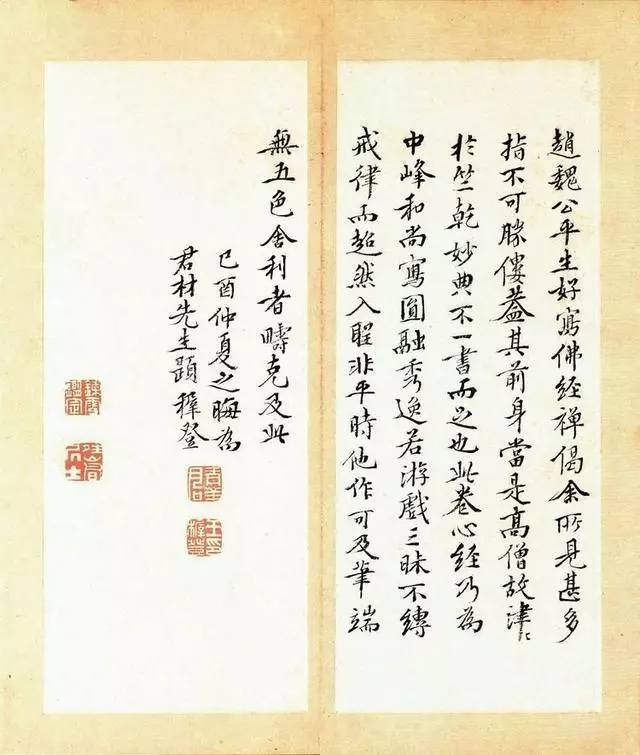 趙魏公平生好寫佛經禅偈余所見甚多
指不可勝僂葢其前身當是高僧故津〻
於竺乾妙典不一書而足也此卷心經乃為
中峰和尚寫圓融秀逸若游戲三昧不縛
戒律而超然入聖非平時他作可及筆端
無五色舍利者疇克及此
己酉仲夏之晦為
君材先生題穉登
王印穉登